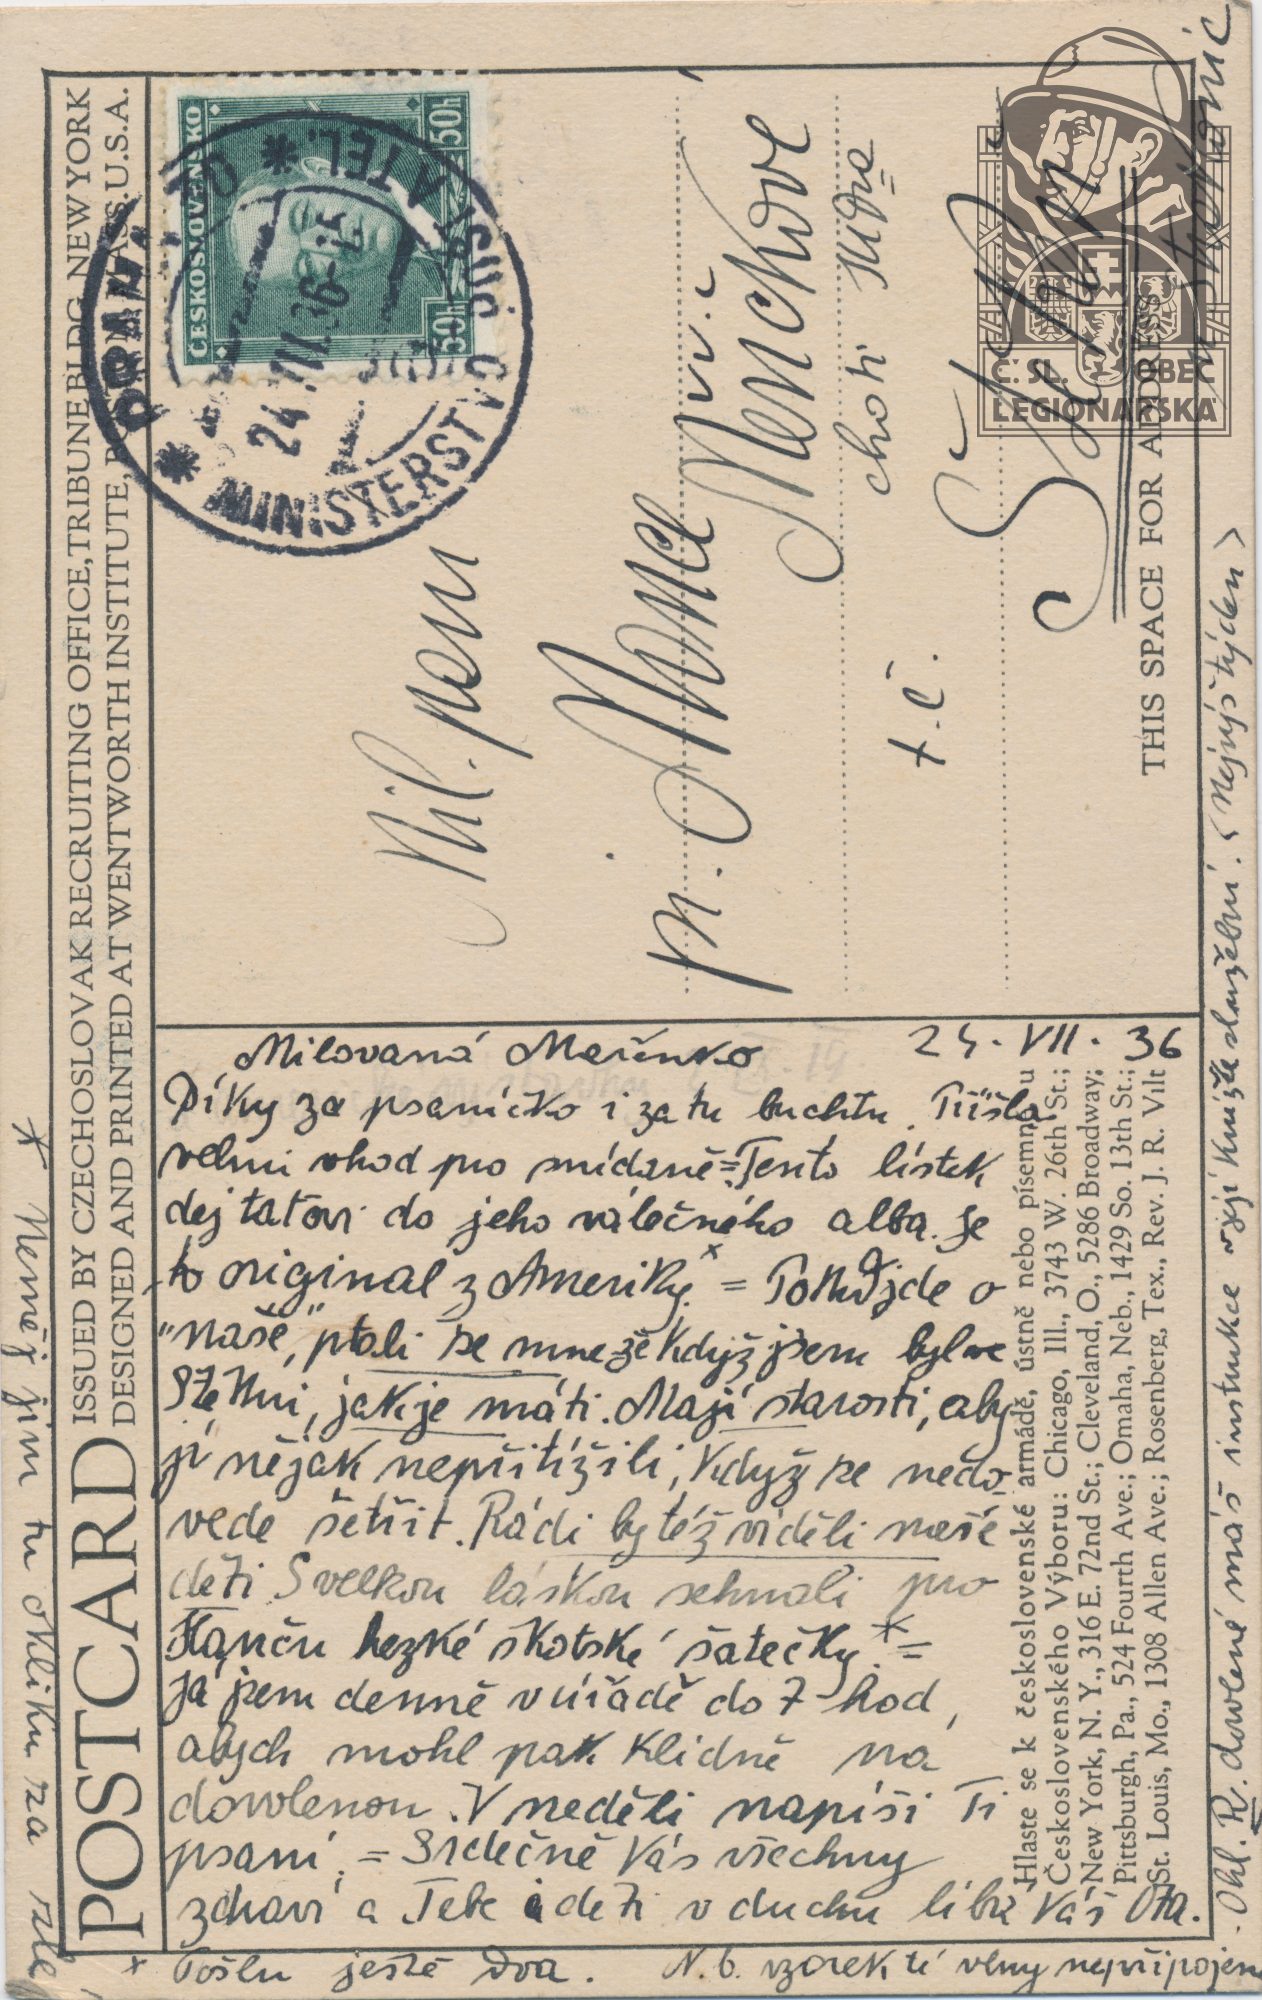 POSTCARD
ISSUED BY CZECHOSLOVAK RECRUITING OFFICE, TRIBUNE BLDG. NEW YORK
DESIGNED AND PRINTED AT WENTWORTH INSTITUTE, MASS. U.S.A.
ČESKOSLOVENSKO
50h 50h
24. VII. 36
MINISTERSTVO
Milovaná Mařenko 24. VII. 36
Díky za psaníčko i za tu buchtu. Přišla
velmi vhod pro snídaně = Tento lístek
dej taťovi do jeho válečného alba. Je
to originál z Ameriky.x = Pokud jde o
"naše", ptali se mne že když jsem byl ve
Štěkni, jak je máti. Mají starosti, aby
jí nějak nepřitížili, když se nedo-
vede šetřit. Rádi by též viděli naše
děti S velkou láskou sehnali pro
Hanču hezké skotské šátečky.* =
Já jsem denně v úřadě do 7 hod,
abych mohl pak klidně na
dovolenou. V neděli napíši Ti
psaní. = Srdečně Vás všechny
zdraví a Tebe i děti v duchu líbá Váš Ota.
x Pošlu ještě dva. N.b. vzorek té vlny nepřipojen
* Neměj jim tu okliku za zlé
Ohl. R. dovolené máš instrukce v její knížce služební. (Nejvýš týden)
Hlaste se k československé armádě, ústně nebo písemnou
Československého Výboru: Chicago, Ill., 3743 W. 26th St.;
New York, N. Y., 316 E. 72nd St.; Cleveland, O., 5286 Broadway;
Pittsburgh, Pa., 524 Fourth Ave.; Omaha, Neb., 1429 So. 13th St.;
St. Louis, Mo., 1308 Allen Ave.; Rosenberg, Tex., Rev. J. R. Vilt
Mil. paní
choti
t.č.
Štěkni
THIS SPACE FOR ADDRESS
Č. SL. OBEC
LEGIONÁŘSKÁ